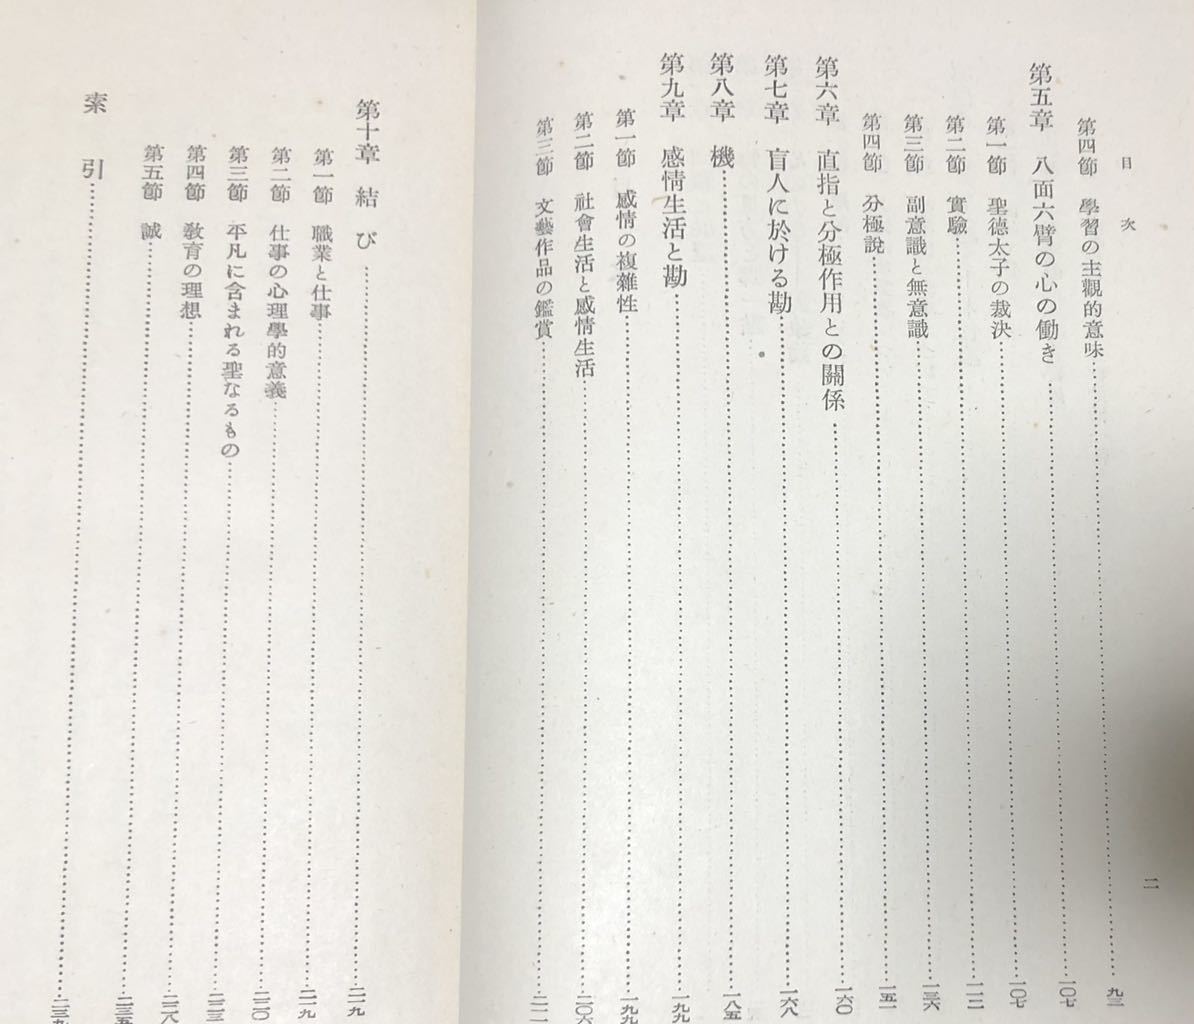 目次
二
第四節 學習の主觀的意味……九三
第五章 八面六臂の心の働き……一〇七
第一節 聖德太子の裁決……一〇七
第二節 實驗……一一二
第三節 副意識と無意識……一三六
第四節 分極說……一五一
第六章 直指と分極作用との關係……一六〇
第七章 盲人に於ける勘……一六八
第八章 機……一八五
第九章 感情生活と勘……一九九
第一節 感情の複雜性……一九九
第二節 社會生活と感情生活……二〇六
第三節 文藝作品の鑑賞……二一一
第十章 結び……二一九
第一節 職業と仕事……二一九
第二節 仕事の心理學的意義……二二〇
第三節 平凡に含まれる聖なるもの……二二三
第四節 敎育の理想……二二八
第五節 誠……二三五
索引……二三九